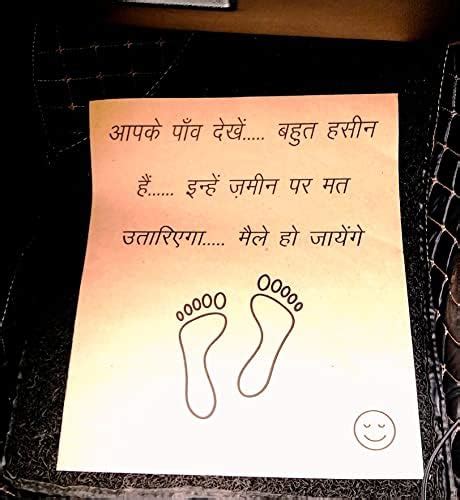 आपके पाँव देखें..... बहुत हसीन
हैं...... इन्हें ज़मीन पर मत
उतारिएगा..... मैले हो जायेंगे